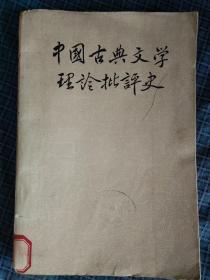 中國古典文学
理论批評史